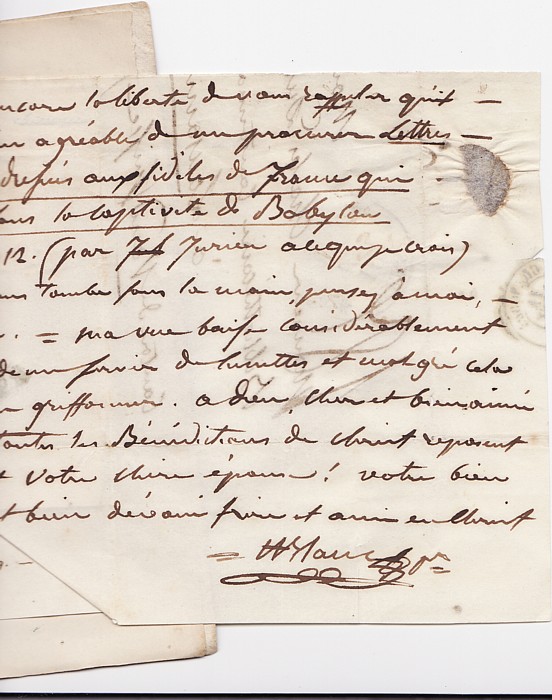 encore la liberté de vous rappeler qu'il
agréable de me procurer Lettres
aux fidèles de France qui
la captivité de Babylon
12. (par Jurieu à ce que je crois)
tombe sous la main, pensez à moi,
= ma vue baisse considérablement
de me servir de lunettes et malgré cela
griffonner. adieu, cher et bien aimé
toutes les Bénédictions de Christ reposent
votre chère épouse! votre bien
bien dévoué frère et ami en Christ